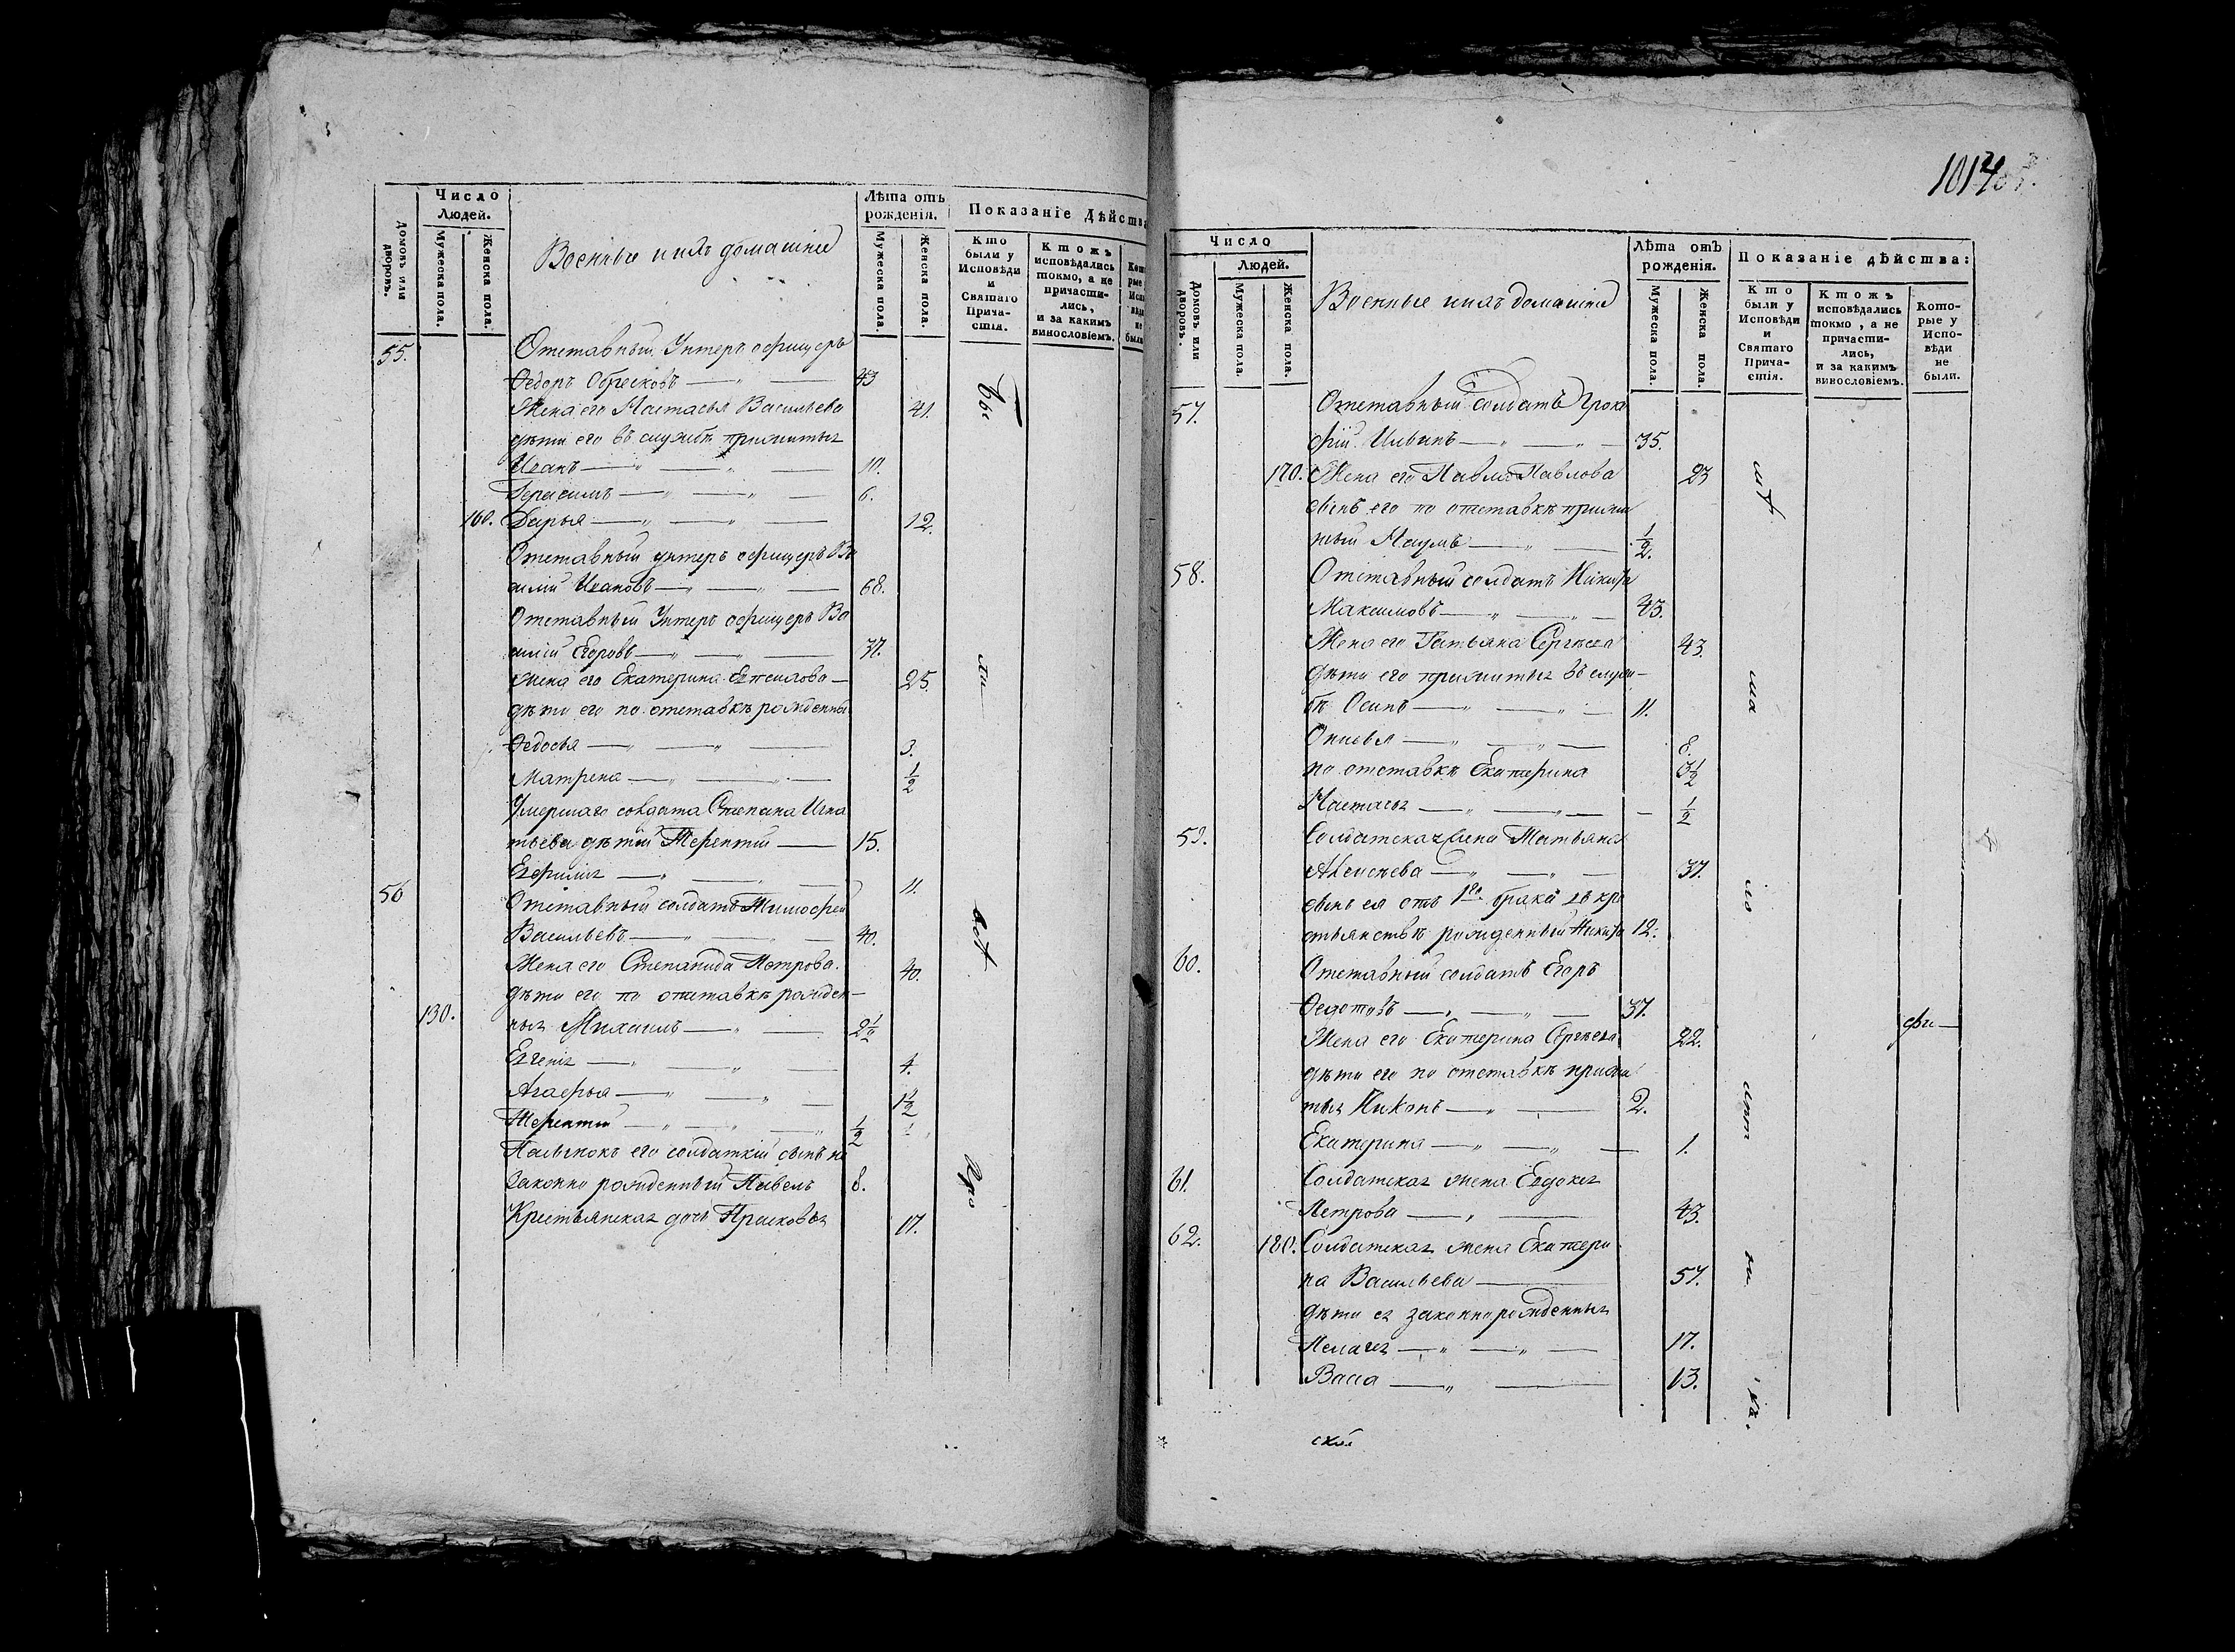 Число
Людей.
Домовъ или дворовъ.
Мужеска пола.
Женска пола.
Военные и ихъ домашніе
Лѣта отъ рожденія.
Мужеска пола.
Женска пола.
Показаніе Дѣйства
Кто были у Исповѣди и Святаго Причастія.
Ктожъ исповѣдались токмо, а не причастились, и за какимъ винословіемъ.
55. Отставный Унтеръ офицеръ
Ѳедоръ Обресковъ 43
Жена его Настасья Васильева 41.
дѣти его въ службѣ прижитыя
Иванъ 10.
Герасимъ 6.
160. Дарья 12.
Отставный унтеръ офицеръ Ва
силій Ивановъ 68.
Отставный Унтеръ офицеръ Ва
силій Егоровъ 37.
жена его Екатерина 25.
дѣти его по отставкѣ рожденны
Ѳедосья 3.
Матрена 1/2
Умершаго солдата Степана Игна
тьева дѣти Терентій 15.
Евфимія 11.
56 Отставный солдатъ Тимофей
Васильевъ 40.
Жена его Степанида Петрова. 40.
дѣти его по отставкѣ рожден-
130. ныя Михаилъ 2 1/2
Евгенія 4.
Агафья 1 1/2
Терентій 1/2
Пасынокъ его солдаткій сынъ не
законно рожденный Павелъ 8.
Крестьянская дочь Прасковья 17.
бы
ли
всѣ
1014
Число
Людей.
Домовъ или дворовъ.
Мужеска пола.
Женска пола.
Военные и ихъ домашніе
Лѣта отъ рожденія.
Мужеска пола.
Женска пола.
Показаніе дѣйства:
Кто были у Исповѣди и Святаго Причастія.
Ктожъ исповѣдались токмо, а не причастились, и за какимъ винословіемъ.
Которые у Исповѣди не были.
57. Отставный солдатъ Прок
фій Ильинъ 35.
170. Жена его Павла Павлова 23
сынъ его по отставкѣ прижи
тый Наумъ 1/2.
58. Отставный солдатъ Никита
Максимовъ 43.
Жена его Татьяна Сергѣева 43.
дѣти его прижитыя въ служ-
бѣ Осипъ 11.
Анисья 8.
по отставкѣ Екатерина 3 1/2
Настасья 1/2
59. Солдатская жена Татьяна
Алексѣева 37.
сынъ ея отъ 1го. брака въ кре
стьянствѣ рожденный Никита 12.
60. Отставный солдатъ Егоръ
Ѳедотовъ 37.
Жена его Екатерина Сергѣева 22.
дѣти его по отставкѣ прижи
тыя Никонъ 2.
Екатерина 1.
61. Солдатская жена Евдокія
Петрова 43.
62. 180. Солдатская жена Екатери
на Васильева 57.
дѣти ея законнорожденныя
Пелагея 17.
Васса 13.
ской